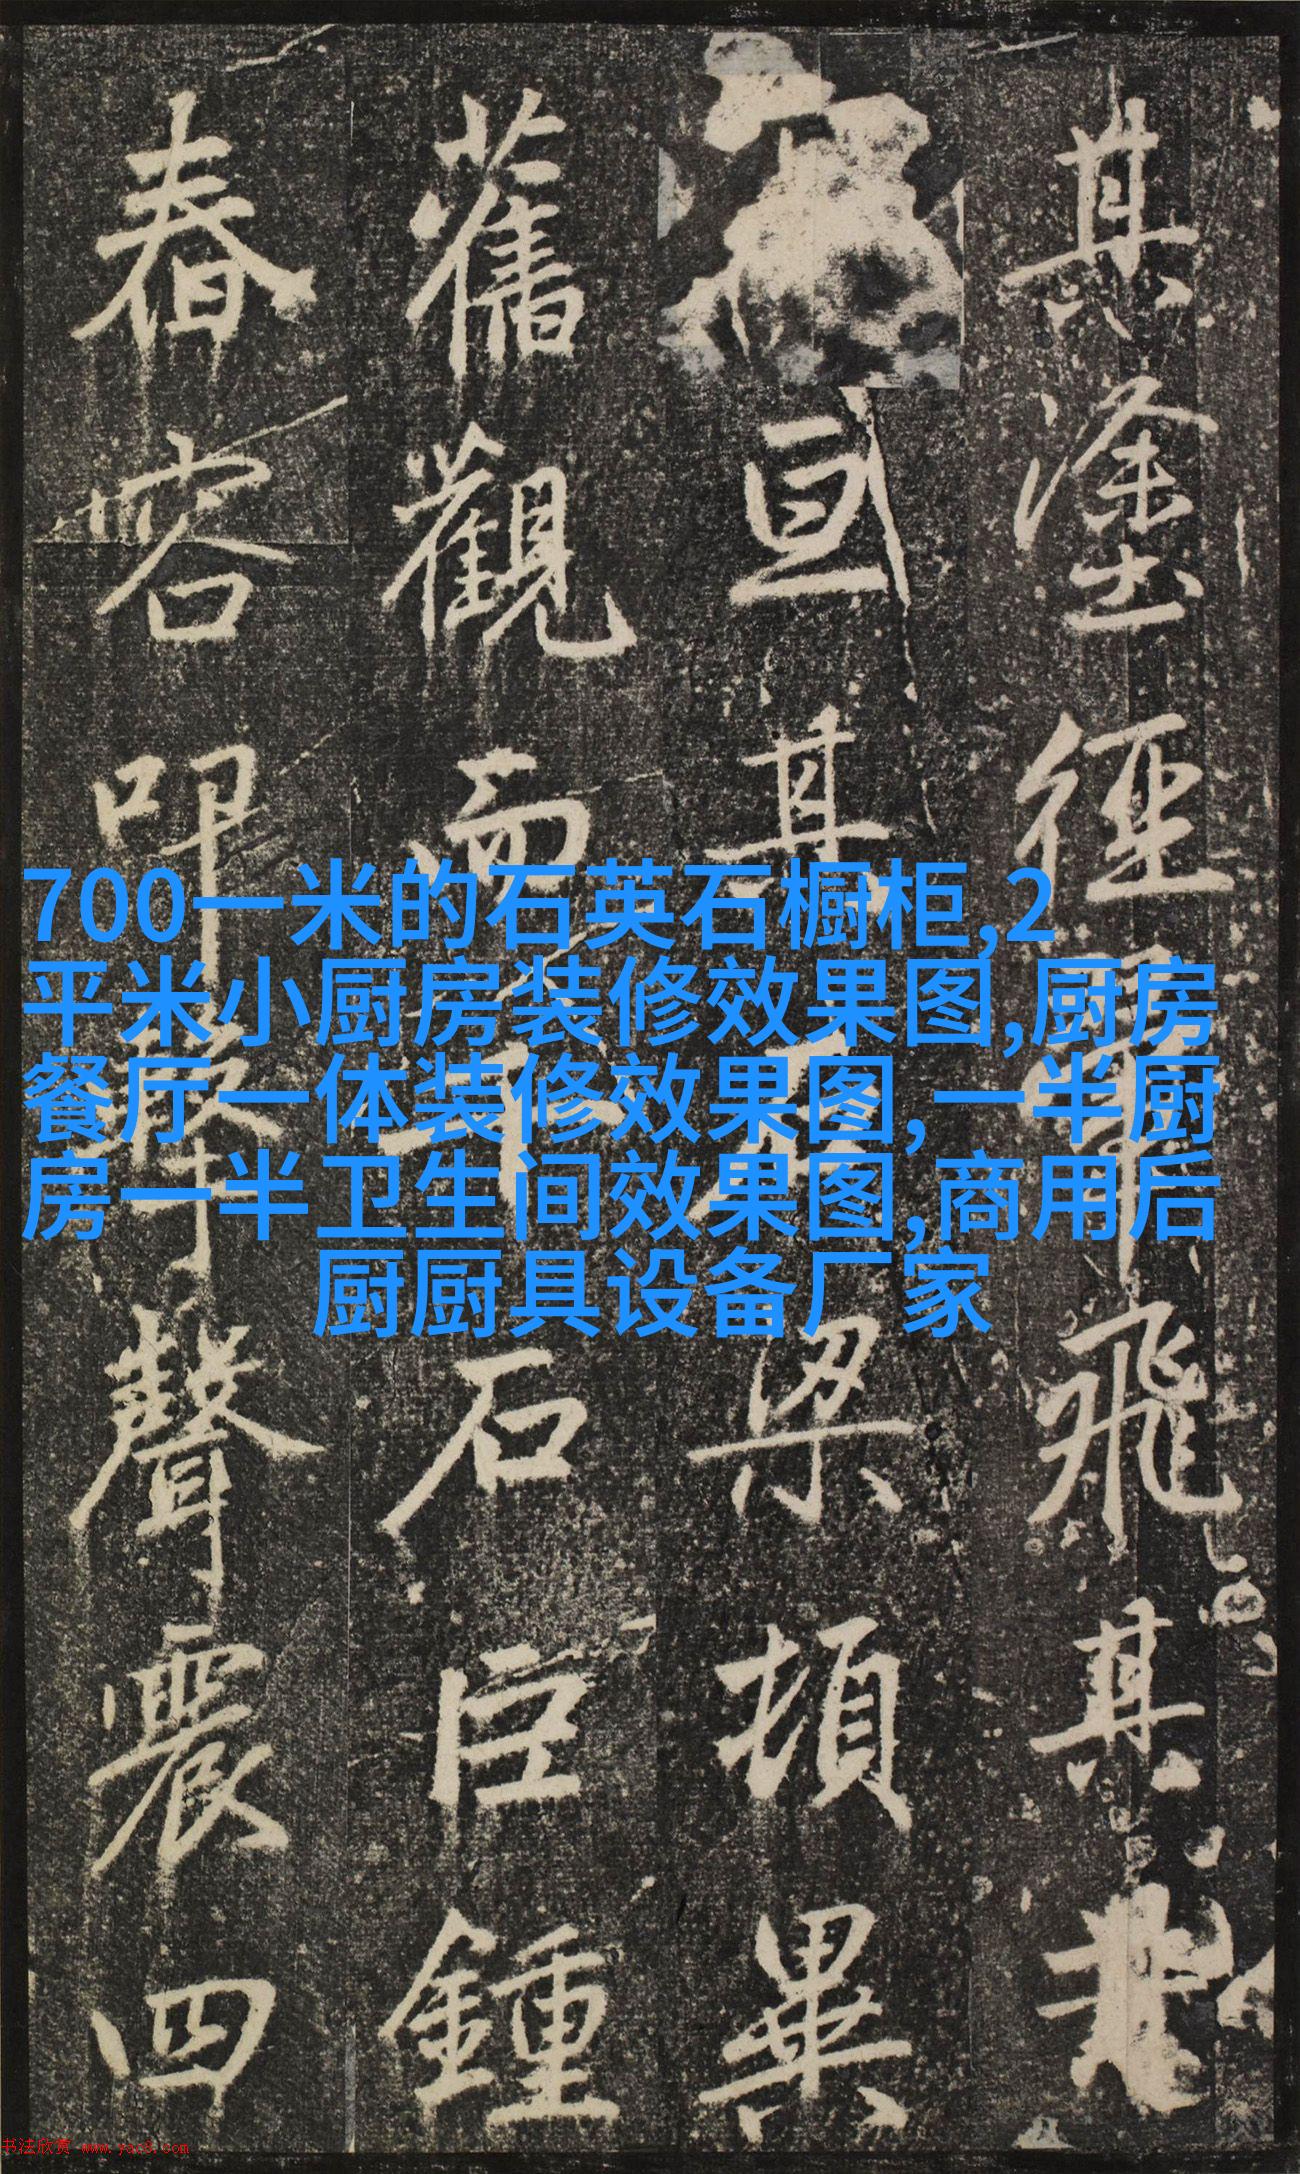 其塗徑飛其
亘其梁頓異
舊觀而石巨鐘
春容叩擊聲震四
700一米的石英石橱柜,2
平米小厨房装修效果图,厨房
餐厅一体装修效果图,一半厨
房一半卫生间效果图,商用后
厨厨具设备厂家
书法欣赏 www.yac8.com